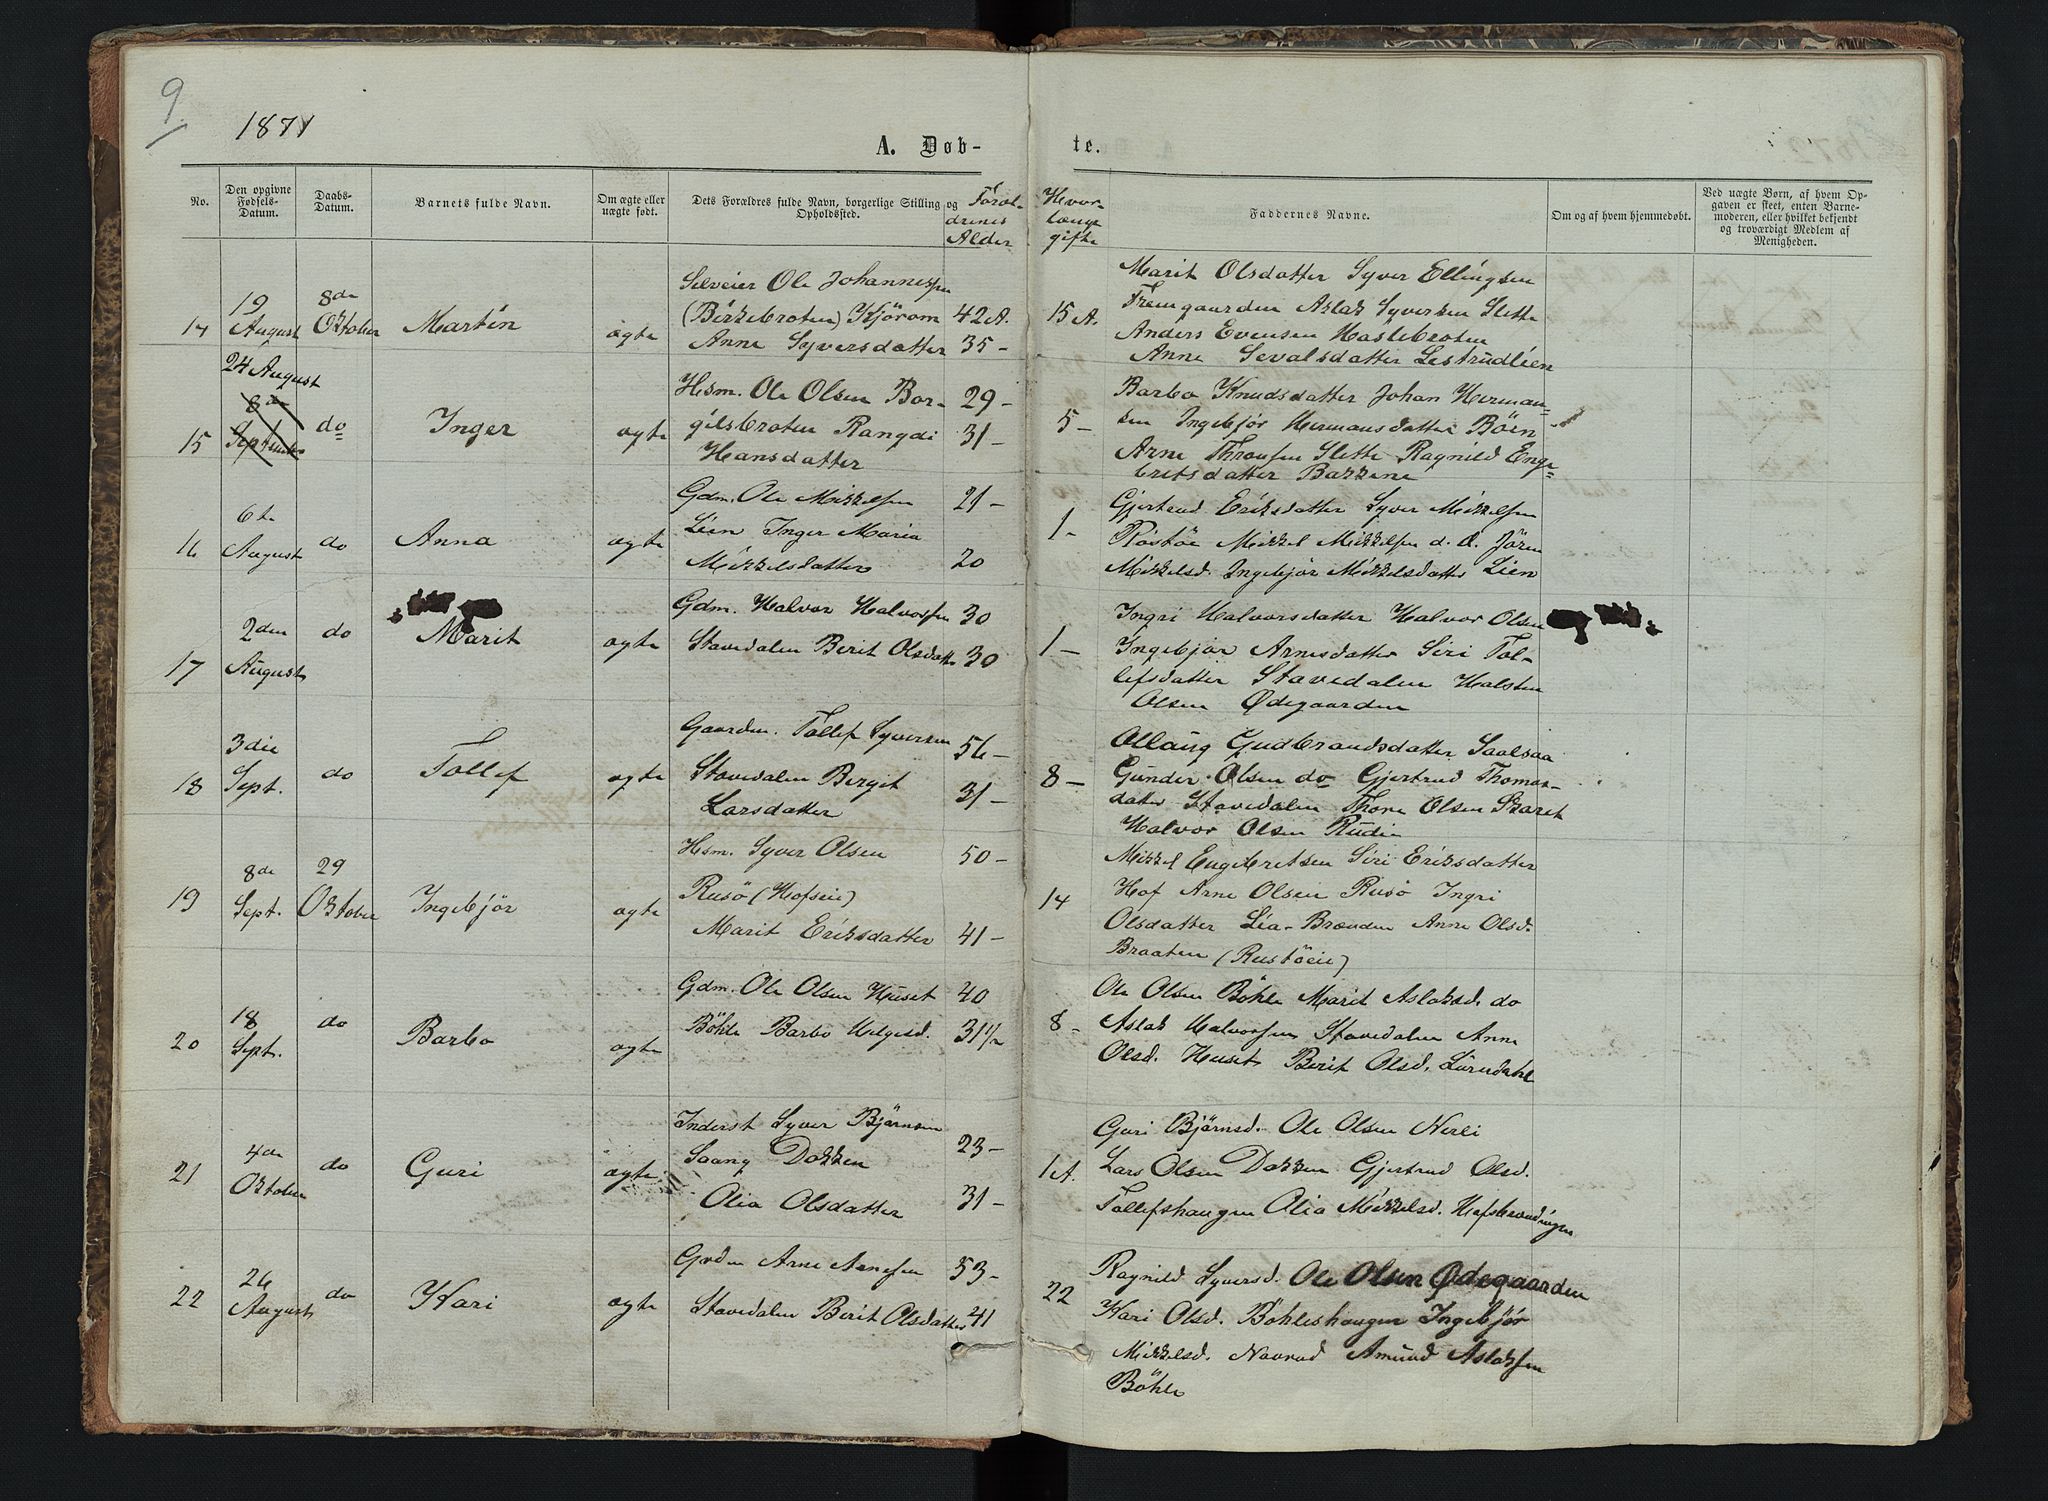 9.
1871
A. Døb-
te.
No.
Den opgivne Fødsels-Datum.
Daabs-Datum.
Barnets fulde Navn.
Om ægte eller uægte født.
Dets Forældres fulde Navn, borgerlige Stilling og Opholdssted.
Foræl-drenes Alder
Hvor-længe gifte
Faddernes Navne.
Om og af hvem hjemmedøbt.
Ved uægte Børn, af hvem Op-gaven er skeet, enten Barne-moderen, eller hvilket bekjendt og troværdigt Medlem af Menigheden.
14
19 August
8de Oktober
Martin
ægte
Selveier Ole Johannessen
(Bikkebroten) Kjørom
Anne Syversdatter
42 A.
35 -
15 A.
Marit Olsdatter Syver Ellingsen
Fremgaarden Aslak Syversen Slette
Anders Evensen Haslebroten
Anne Sevalsdatter Lestrudlien
15
24 August
8de September
do
Inger
ægte
Hsm. Ole Olsen Bor-
gilsbroten Rangdi
Hansdatter
29 -
31 -
5 -
Barbo Knudsdatter Johan Herman-
sen Ingebjør Hermansdatter Böen
Arne Thronsen Slette Ragnild Enge-
britsdatter Bakkene
16
6te August
do
Anna
ægte
Gdm. Ole Mikkelsen
Lien Inger Maria
Mikkelsdatter
21 -
20
1 -
Gjertrud Eriksdatter Syver Mikkelsen
Röstöe Mikkel Mikkelsen d. d. Jören
Mikkelsd. Ingebjör Mikkelsdatter Lien
17
2den August
do
Marit
ægte
Gdm. Halvor Halvorsen
Stavedalen Berit Olsdatter
30
30
1 -
Ingri Halvorsdatter Halvor Olsen
Ingebjör Arnesdatter Siri Tol-
lefsdatter Stavedalen Halsten
Olsen Ødegaarden
18
3die Sept.
do
Tollef
ægte
Gaardm. Tollef Syversen
Stavedalen Bergit
Larsdatter
56 -
31 -
8 -
Ollaug Gudbrandsdatter Saalsaa
Gunder Olsen do Gjertrud Thomas-
datter Stavedalen Thore Olsen Skaret
Halvor Olsen Rudie
19
8de Sept.
29 Oktober
Ingebjör
ægte
Hsm. Syver Olsen
Rusö (Hofseie)
Marit Eriksdatter
50 -
41 -
14
Mikkel Engebretsen Siri Eriksdatter
Hof Arne Olsen Rusö Ingri
Olsdatter Lia-Brænden Anne Olsd.
Braaten (Rustöeie)
20
18 Sept.
do
Barbo
ægte
Gdm. Ole Olsen Huset
Böhle Barbo Helgesd.
40
31 1/2
8 -
Ole Olsen Böhle Marit Aslaksd. do
Aslak Halvorsen Stavedalen Anne
Olsd. Huset Berit Olsd. Lürudahl
21
4de Oktober
do
Guri
ægte
Inderst Syver Bjørnsen
Saang Dokken
Olia Olsdatter
23 -
31 -
1 A.
Guri Bjørnsd. Ole Olsen Nerli
Lars Olsen Dokken Gjertrud Olsd.
Tollefshaugen Olia Mikkelsd. Hofsbraadingen
22
26 August
do
Kari
ægte
Grdm Arne Arnesen
Stavedalen Berit Olsdatter
53 -
41
22
Ragnild Syversd. Ole Olsen Ødegaarden
Kari Olsd. Böhleshaugen Ingebjör
Mikkelsd. Navrud Amund Aslaksen
Böhle